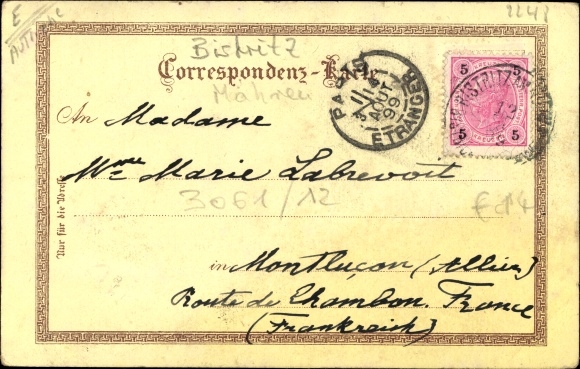 E
2242
Bistritz
Correspondenz-Karte
Mähren
PARIS
ETRANGER
AOUT
99
5 5
5 5
BISTRITZ
An Madame
Mme Marie Labrevoit
3061/12
Nur für die Adresse
in Montluçon (Allier)
Route de Chambon. France
(Frankreich)